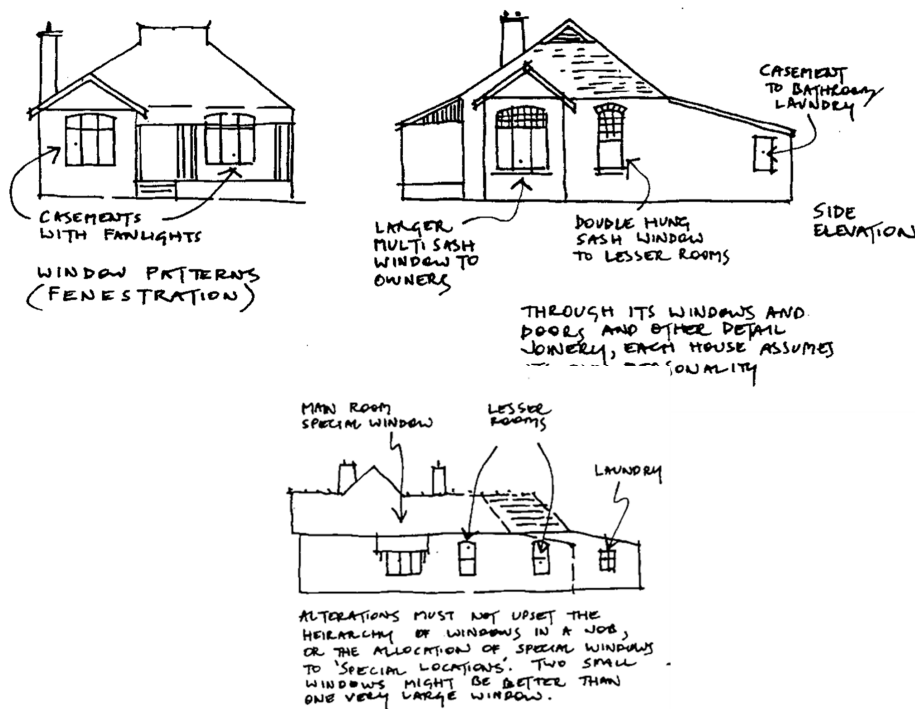 CASEMENTS
WITH FANLIGHTS
WINDOW PATTERNS
(FENESTRATION)
LARGER
MULTI SASH
WINDOW TO
OWNERS
DOUBLE HUNG
SASH WINDOW
TO LESSER ROOMS
CASEMENT
TO BATHROOM
LAUNDRY
SIDE
ELEVATION
THROUGH ITS WINDOWS AND
DOORS AND OTHER DETAIL
JOINERY, EACH HOUSE ASSUMES
MAIN ROOM
SPECIAL WINDOW
LESSER
ROOMS
LAUNDRY
ALTERATIONS MUST NOT UPSET THE
HEIRARCHY OF WINDOWS IN A JOB,
OR THE ALLOCATION OF SPECIAL WINDOWS
TO 'SPECIAL LOCATIONS'. TWO SMALL
WINDOWS MIGHT BE BETTER THAN
ONE VERY LARGE WINDOW.